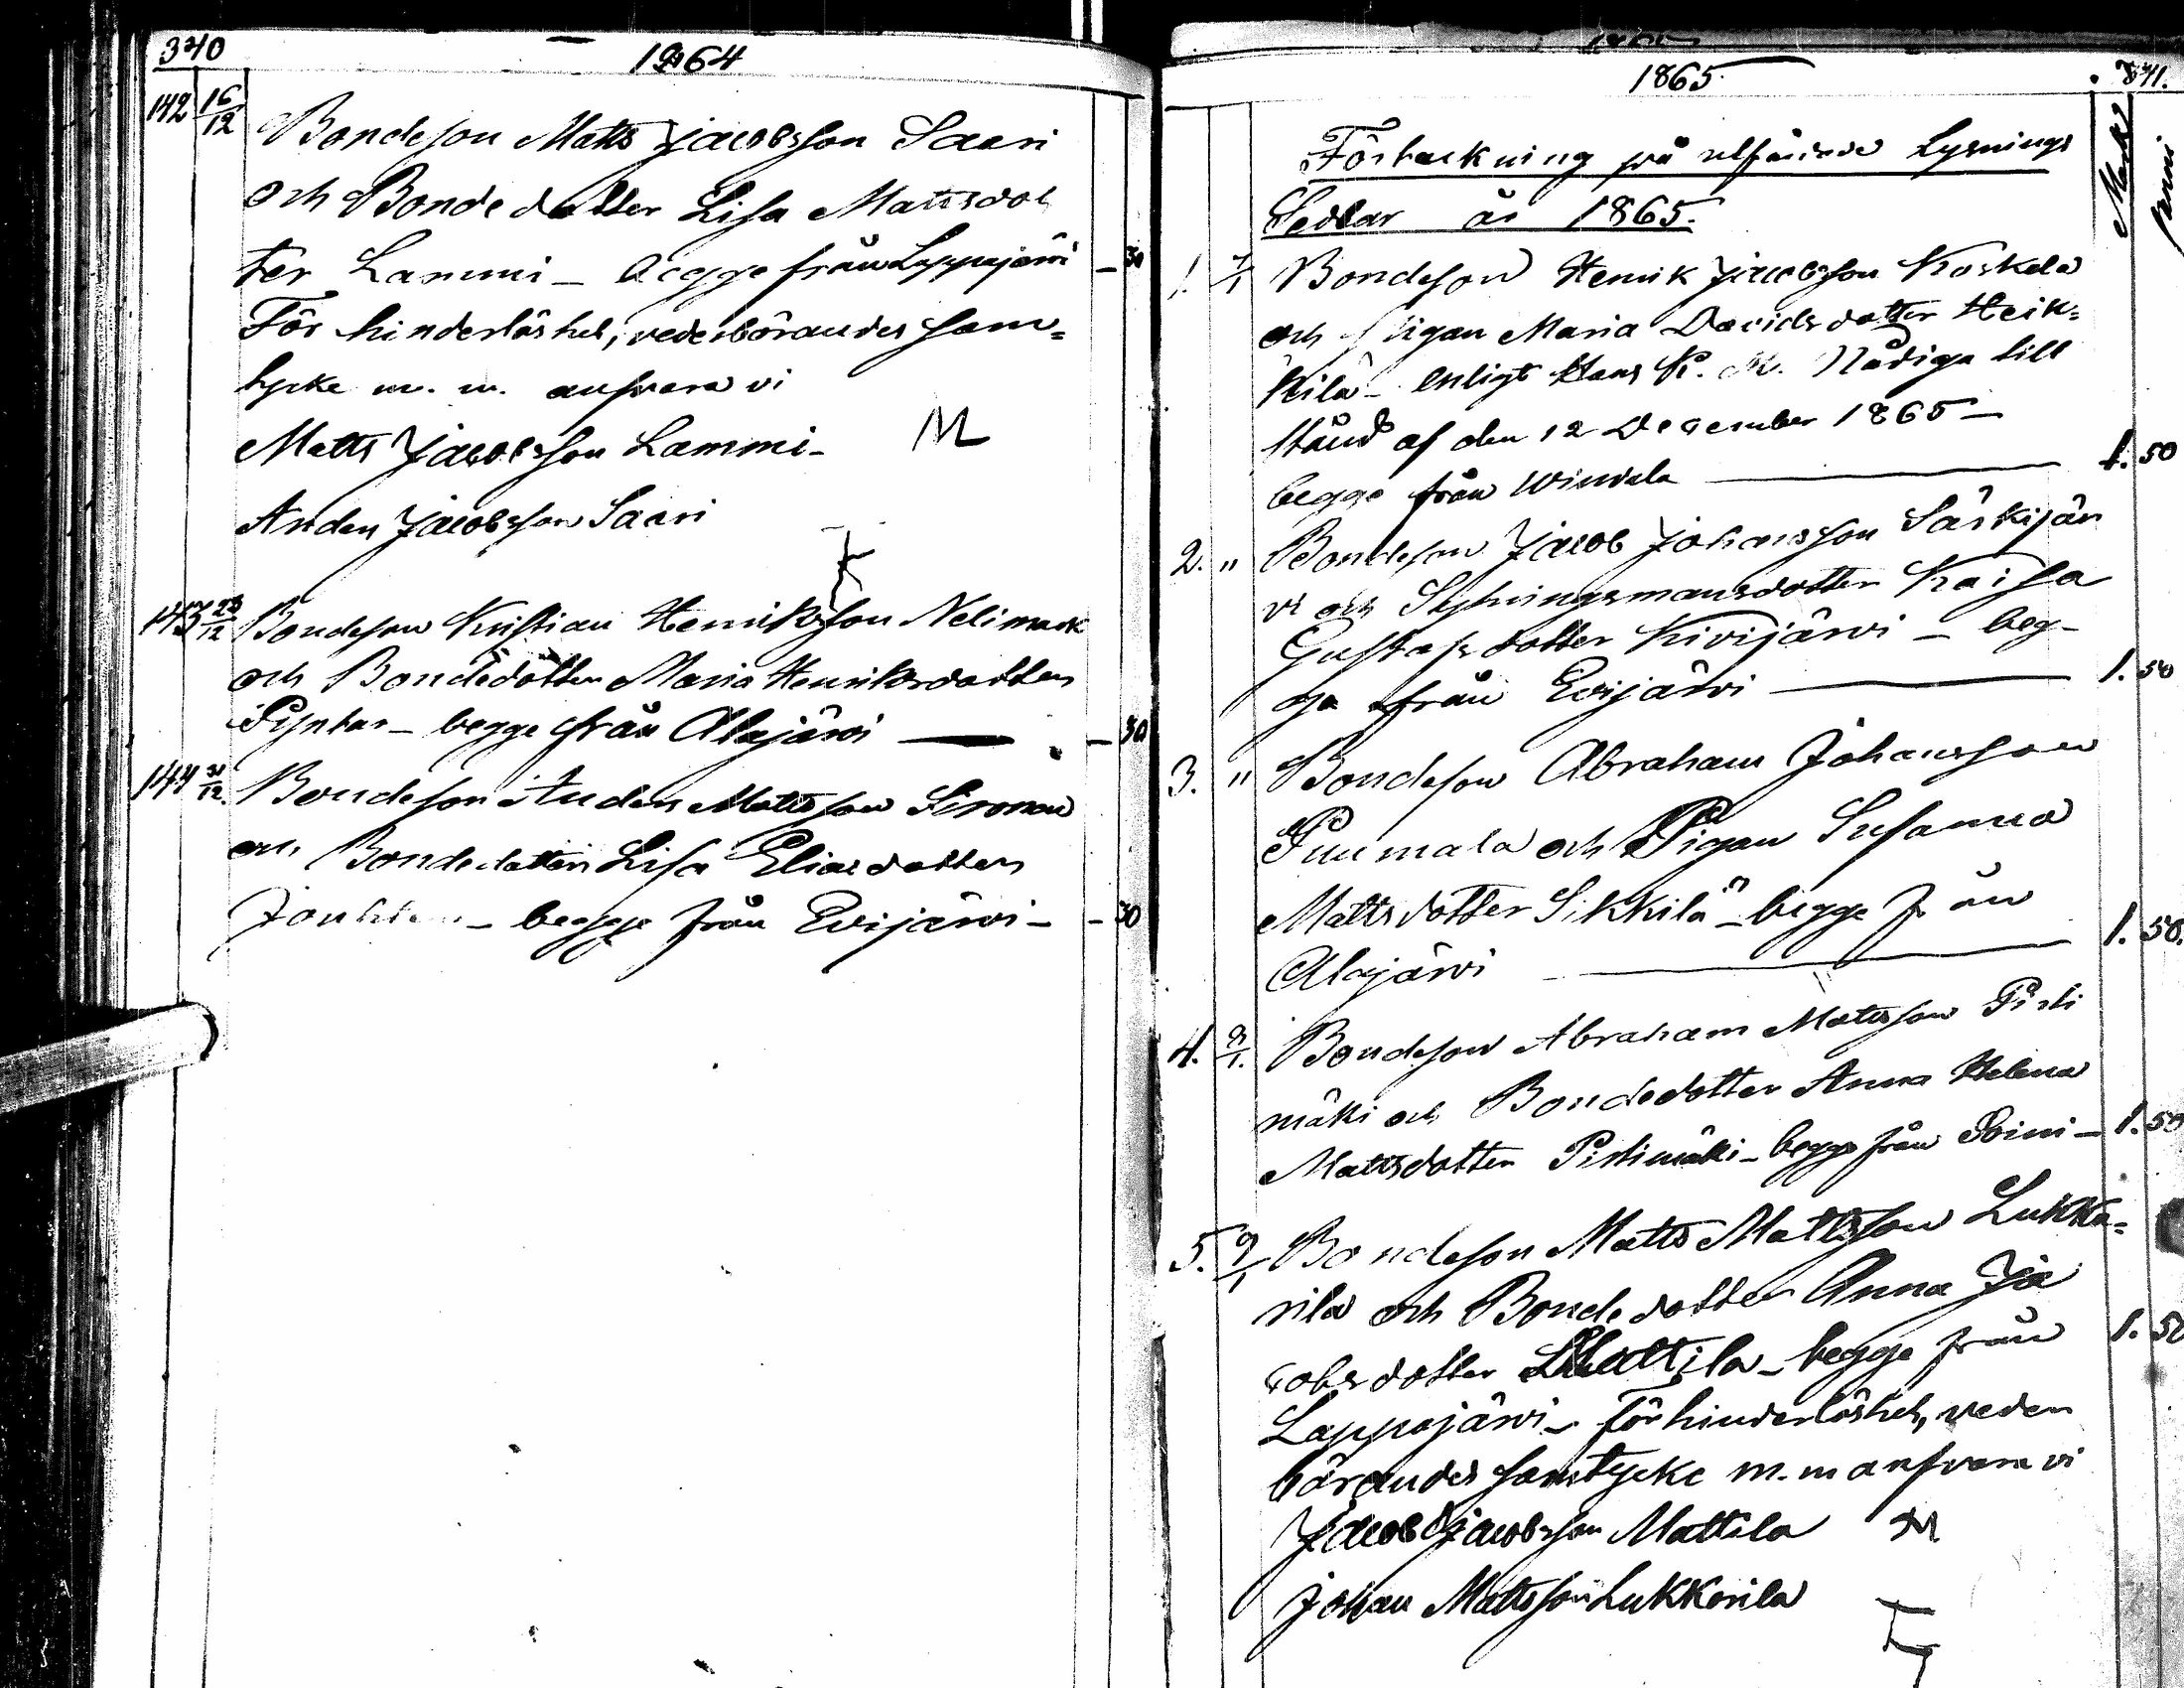 340
1864
142 16/12 Bondeson Matts Jacobsson Saari
och Bondedotter Lisa Mattsdot
ter Lammi _ begge från Lappajärvi _ 30
För hinderlöshet, vederbörandes sam=
tycke m. m. ansvara vi
Matts Jacobsson Lammi _ M
Anders Jacobsson Saari
143 23/12 Bondeson Kristian Henriksson Nelimark
och Bondedotter Maria Henriksdotter
begge från Alajärvi — _ 30
144 31/12 Bondeson Anders Mattsson
och Bondedotter Lisa Eliaedotter
_ begge från Evijärvi _ - 30
1865
341.
Mark
penni
Förteckning på utfärdade Lysnings
Sedlar år 1865.
1. Bondeson Henrik Jacobsson Koskela
och Pigan Maria Davidsdotter Heik=
kilä _ enligt Hans K. M. Nådiga till
stånd af den 12 December 1865 _
begge från Windala — 1. 50
2. " Bondeson Jacob Johansson Särkijär
vi och Sytningsmansdotter Kaisa
Gustafsdotter Kivijärvi _ beg-
ge från Evijärvi — 1. 50
3. " Bondeson Abraham Johansson
Puumala och Pigan Susanna
Mattsdotter Sikkilä _ begge från
Alajärvi — 1. 50.
4. Bondeson Abraham Mattsson Pisti
mäki och Bondedotter Anna Helena
Mattsdotter Pistimäki _ begge från Soini _ 1. 50
5. 9/1 Bondeson Matts Mattsson Lukka=
rila och Bondedotter Anna Ja
cobsdotter Mattila _ begge från 1. 50
Lappajärvi _ för hinderlöshet, veder
börandes samtycke m. m ansvara vi
Jacob Jacobsson Mattila M
Johan Mattsson Lukkarila